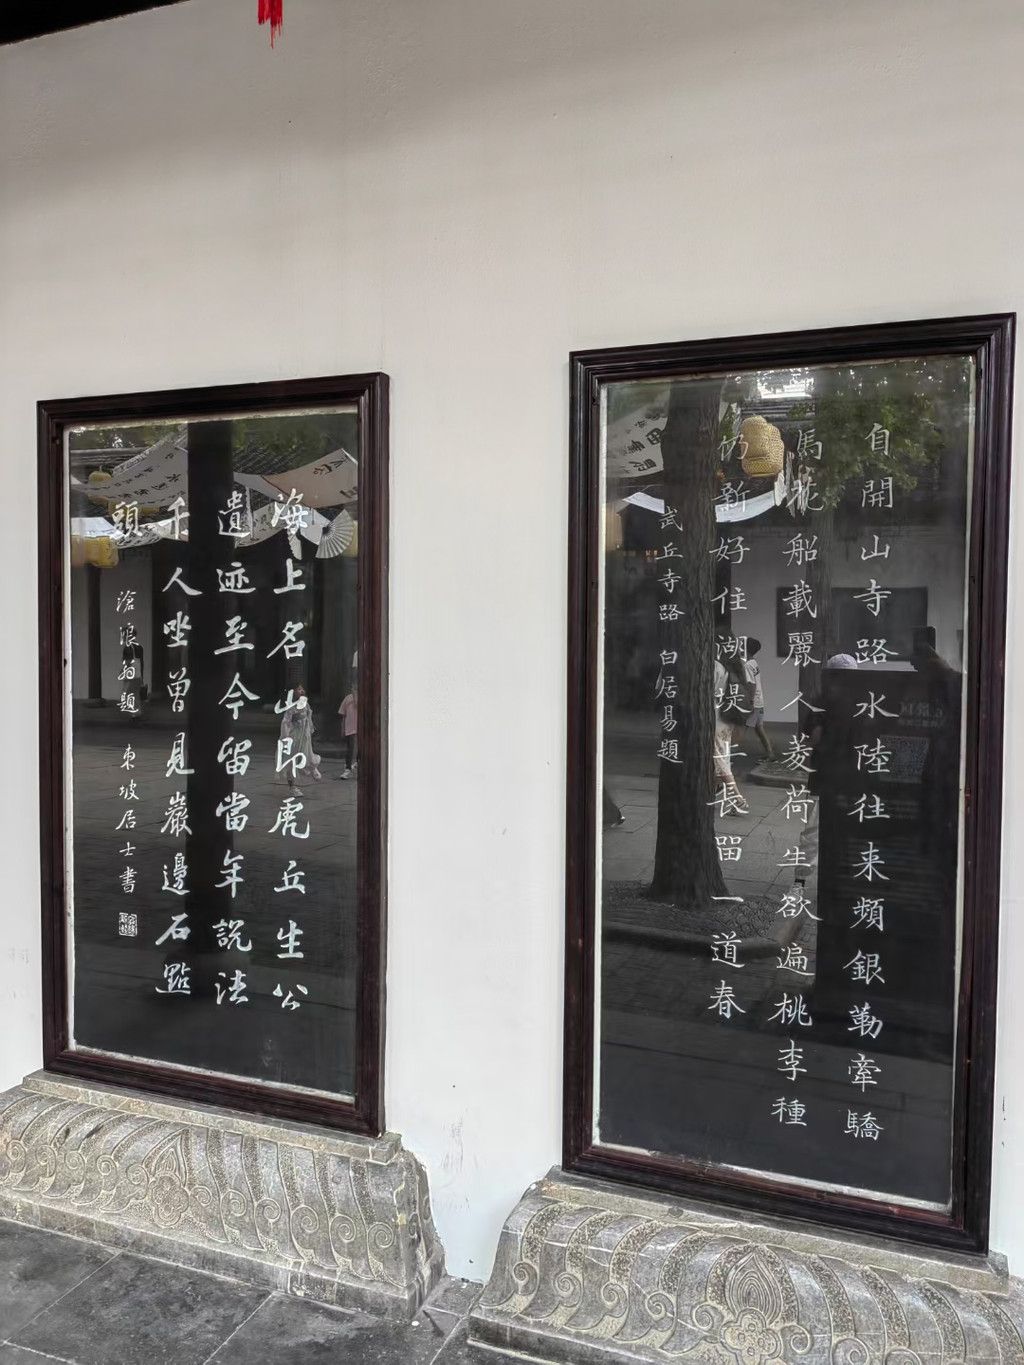 自開山寺路水陸往来頻銀勒牽驕
馬花船載麗人菱荷生欲遍桃李種
仍新好住湖堤上長留一道春
武丘寺路 白居易題
海上名山即虎丘生公
遺迹至今留當年説法
千人坐曾見巖邊石點
頭
滄浪翁題 東坡居士書